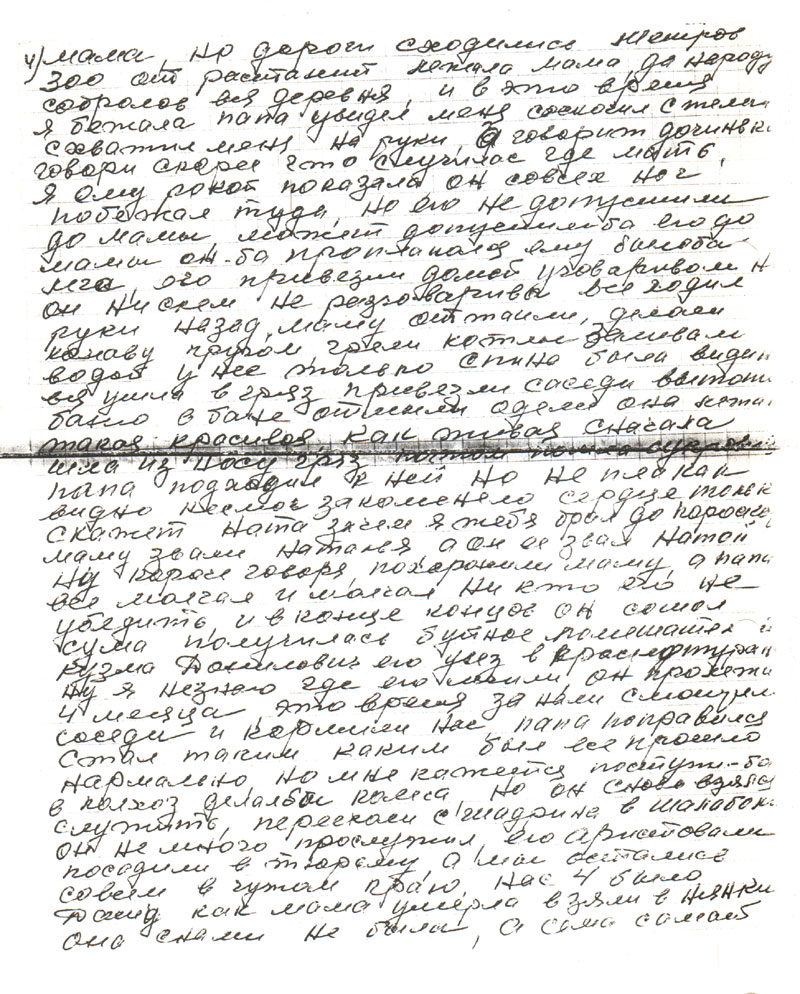 4) мама, но дороги сходились метров
300 от растаний лежала мама, да народу
собролов вся деревня, и в это время
я бежала папа увидел меня соскочил с телеги
схватил меня на руки, а говорит дочинька
говори скорее что случилас где мать,
я ему рокой показала он совсех ног
побежал туда, но его не допустили
до мамы, может допустилиба его до
мамы он-ба проплакался ему былоба
легче, его привезли домой уговаривали
он нискем не разговаривал все ходил
руки назад, маму оттаили, делали
конаву кругом грели котлы заливали
водой у нее только спина была видна
вся ушла в гряз, привезли саседи вытопили
баню в бане отмыли одели она лежит
такая красивая как живая сначала
шла из носу гряз потом пошла
папа подходил к ней но не плакал
видно несмог закоменело сердце только
скажет Ната зачем я тебя брал до
маму звали Наталья а он ее звал Натой
ну короче говоря, похоронили маму, а папа
все молчал и молчал ни кто его не
убедить, и в конце концов он сошол
сума получилась бутное помешател
Кузма Данилович его увез в
ну я незнаю где его он пролежал
4 месяца, это время за нами смотрели
соседи и кормили нас, папа поправился
стал таким каким был все прошло
нармально но мне кажется поступил-ба
в колхоз делалбы колеса но он снова взялся
служить, переехали с Шадрина в
он не много прослужил, его аристовали
посадили в тюрему а мы остались
совсем в чужом краю, нас 4 было
как мама умерла взяли в нянки
она снами не была, а сама самой